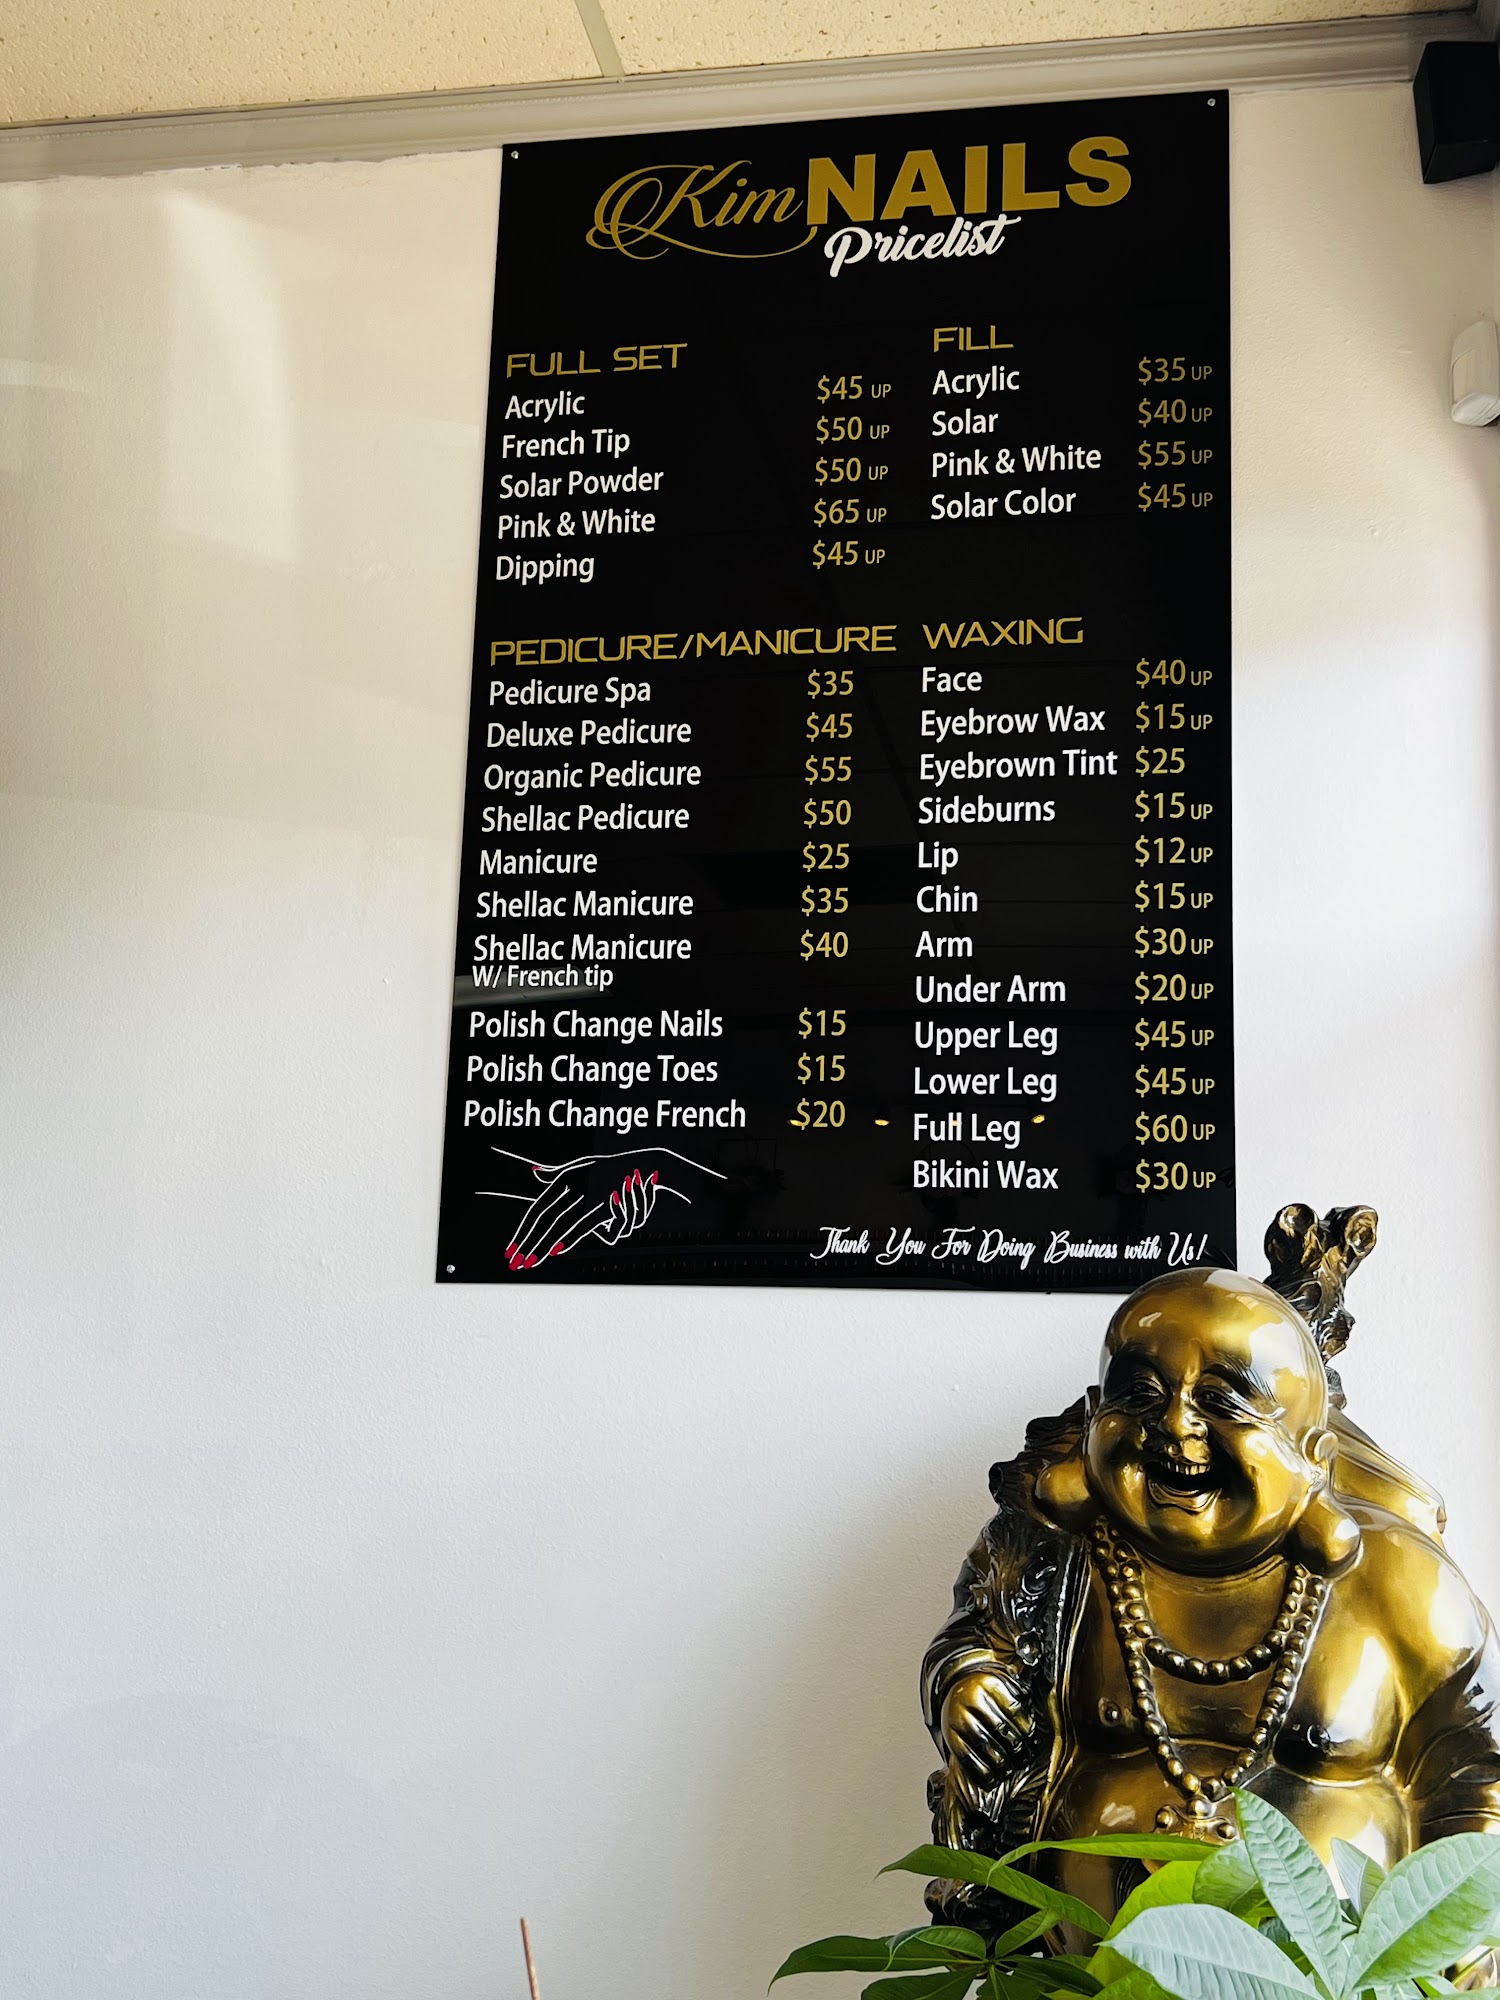 Kim NAILS
Pricelist
FULL SET
Acrylic $45 UP
French Tip $50 UP
Solar Powder $50 UP
Pink & White $65 UP
Dipping $45 UP
FILL
Acrylic $35 UP
Solar $40 UP
Pink & White $55 UP
Solar Color $45 UP
PEDICURE/MANICURE
Pedicure Spa $35
Deluxe Pedicure $45
Organic Pedicure $55
Shellac Pedicure $50
Manicure $25
Shellac Manicure $35
Shellac Manicure $40
W/ French tip
Polish Change Nails $15
Polish Change Toes $15
Polish Change French $20
WAXING
Face $40 UP
Eyebrow Wax $15 UP
Eyebrown Tint $25
Sideburns $15 UP
Lip $12 UP
Chin $15 UP
Arm $30 UP
Under Arm $20 UP
Upper Leg $45 UP
Lower Leg $45 UP
Full Leg $60 UP
Bikini Wax $30 UP
Thank You For Doing Business with Us!